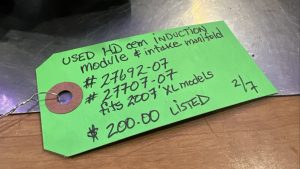 USED HD oem INDUCTION
module & intake manifold
# 27692-07
# 27707-07
fits 2007 XL models
2/7
$ 200.00 LISTED